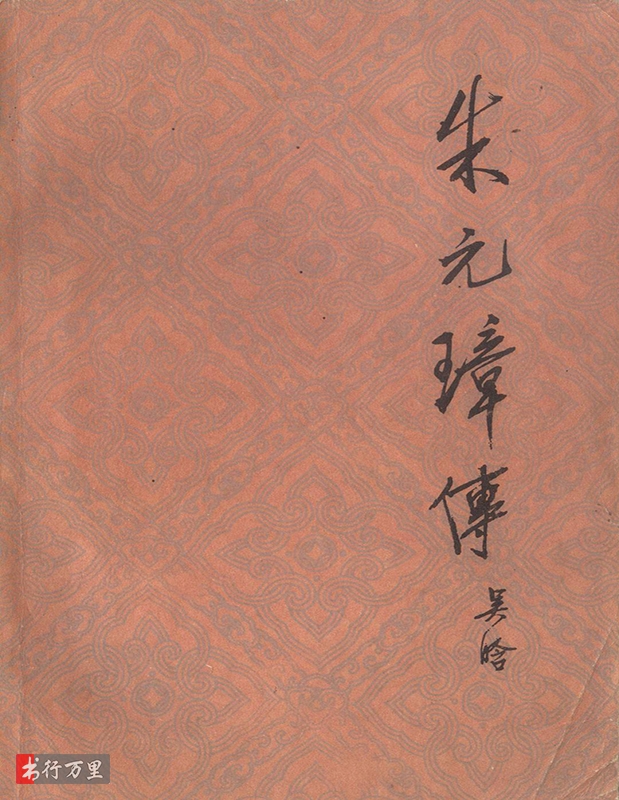 朱元璋傳
吴晗
书行万里